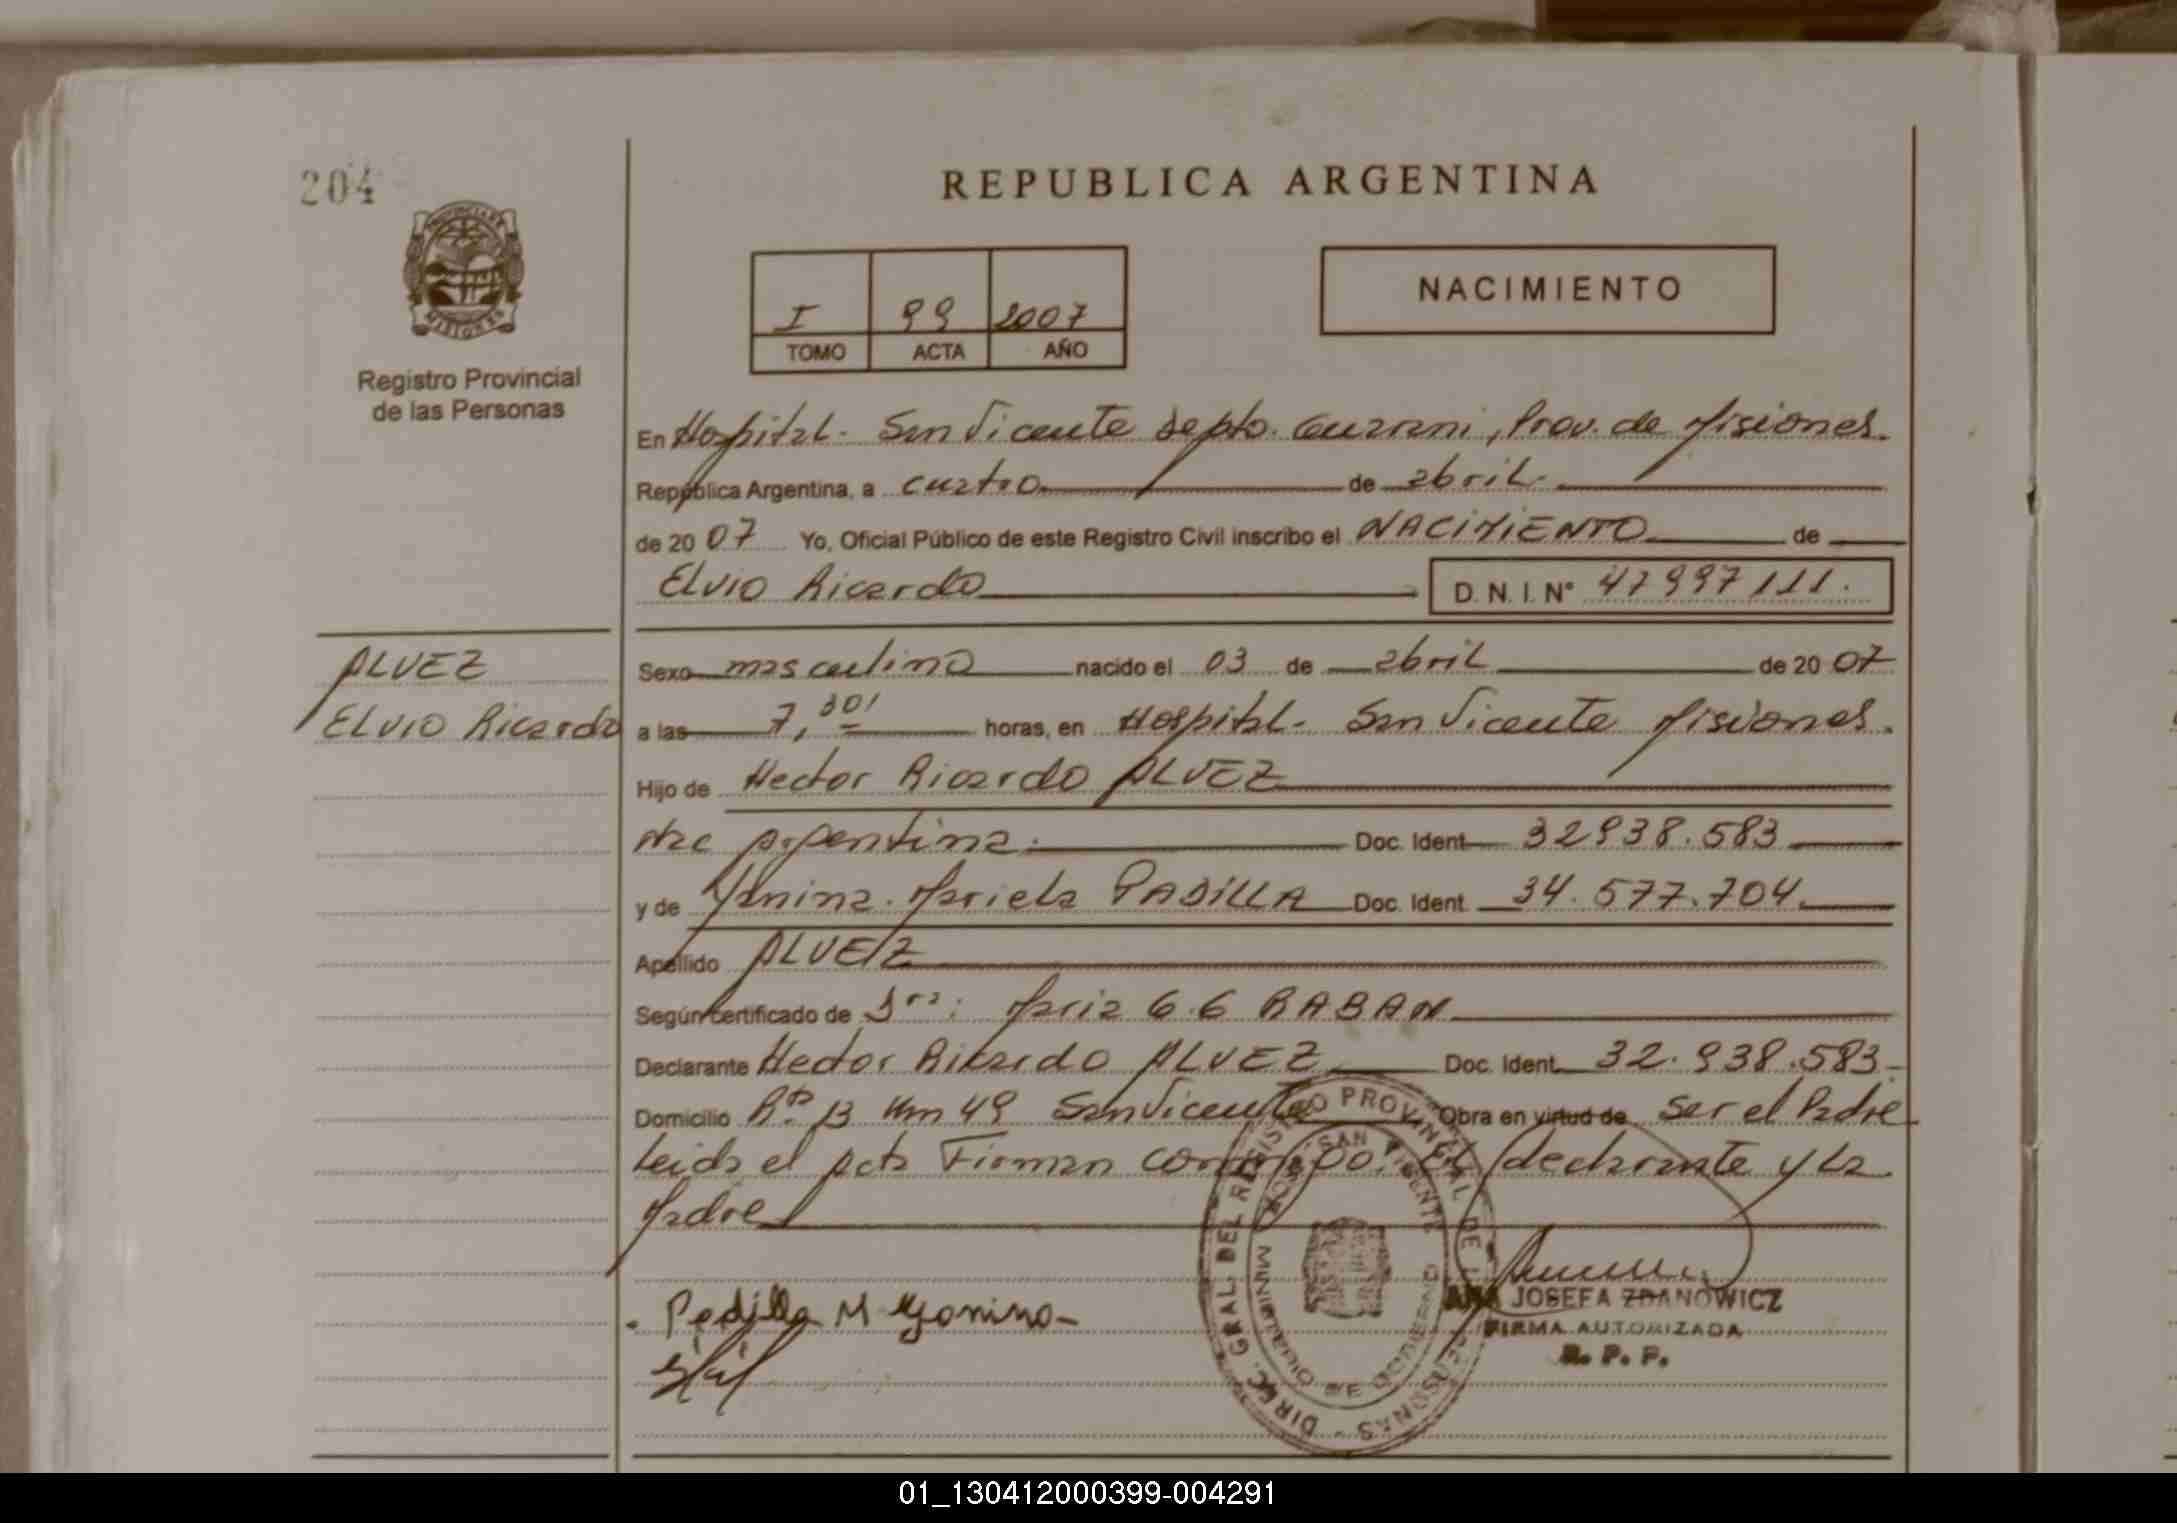 204
REPUBLICA ARGENTINA
PROVINCIA DE
MISIONES
Registro Provincial
de las Personas
I 99 2007
TOMO ACTA AÑO
NACIMIENTO
En Hospital - San Vicente Depto. Guarani, Prov. de Misiones.
República Argentina, a cuatro de abril.
de 20 07 Yo, Oficial Público de este Registro Civil inscribo el NACIMIENTO de
Elvio Ricardo D. N. I. N° 47997111.
ALVEZ
Elvio Ricardo
Sexo masculino nacido el 03 de abril de 20 07
a las 7,30' horas, en Hospital - San Vicente Misiones.
Hijo de Hector Ricardo ALVEZ
Nac Argentina. Doc. Ident 32938.583
y de Yanina. Mariela PADILLA Doc. Ident. 34.577.704.
Apellido ALVEZ
Según certificado de Dra: Maria G.G RABAN
Declarante Hector Ricardo ALVEZ Doc. Ident. 32.938.583.-
Domicilio Rta 13 Km 49 San Vicente Obra en virtud de Ser el Padre
Leida el Acta Firman conmigo. El declarante y La
Madre
Padilla M Yanina-
DIREC. GRAL. DEL REGISTRO PROVINCIAL DE LAS PERSONAS
SAN VICENTE
MINISTERIO DE GOBIERNO
ANA JOSEFA ZDANOWICZ
FIRMA AUTORIZADA
R. P. P.
01_130412000399-004291